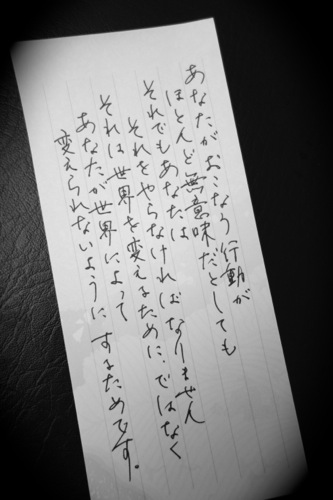 あなたがおこなう行動が
ほとんど無意味だとしても
それでもあなたは
それをやらなければなりません
それは世界を変えるために、ではなく
あなたが世界によって
変えられないようにするためです。